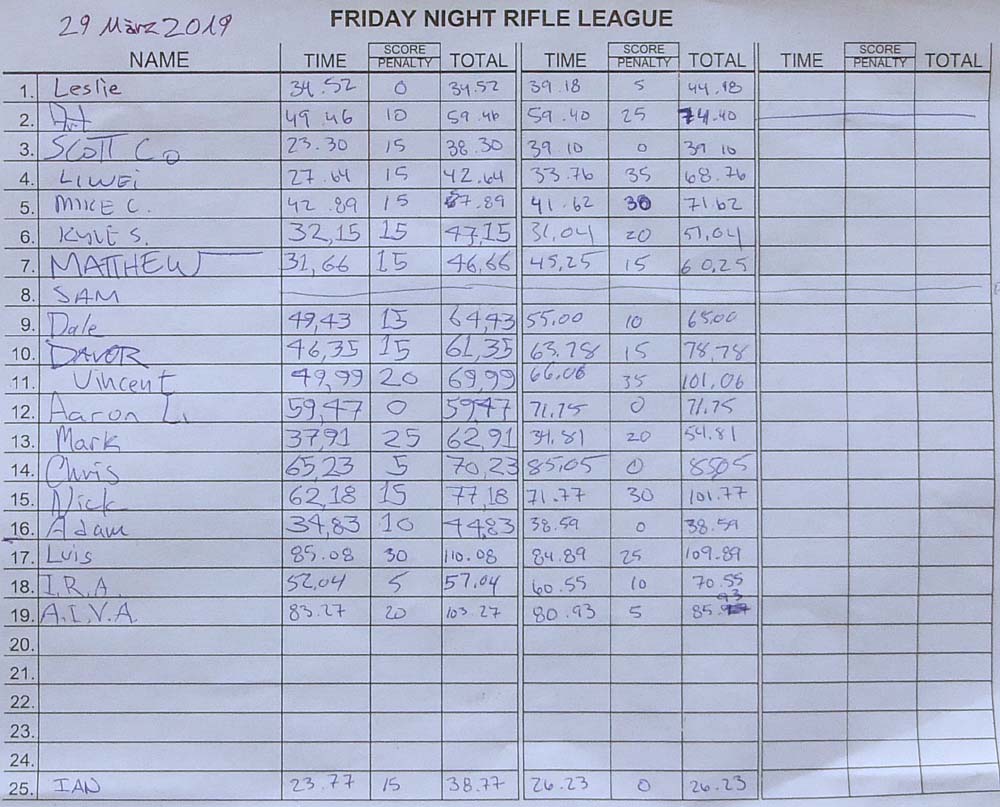 29 März 2019
FRIDAY NIGHT RIFLE LEAGUE
NAME TIME SCORE PENALTY TOTAL TIME SCORE PENALTY TOTAL TIME SCORE PENALTY TOTAL
1. Leslie 34.52 0 34.52 39.18 5 44.18
2. Art 49.46 10 59.46 59.40 25 74.40
3. SCOTT Co 23.30 15 38.30 39 10 0 39 10
4. LIWEi 27.64 15 42.64 33.76 35 68.76
5. MIKE C. 42.89 15 57.89 41.62 30 71.62
6. KYLE S. 32,15 15 47,15 31.04 20 51.04
7. MATTHEW 31,66 15 46,66 45,25 15 60.25
8. SAM
9. Dale 49,43 15 64,43 55.00 10 65.00
10. DAVOR 46,35 15 61,35 63.78 15 78.78
11. Vincent 49,99 20 69,99 66.06 35 101.06
12. Aaron L. 59,47 0 59,47 71.75 0 71.75
13. Mark 37,91 25 62,91 34.81 20 54.81
14. Chris 65,23 5 70,23 85.05 0 85.05
15. Nick 62,18 15 77,18 71.77 30 101.77
16. Adam 34,83 10 44,83 38.59 0 38.59
17. Luis 85.08 30 110.08 84.89 25 109.89
18. I.R.A. 52.04 5 57.04 60.55 10 70.55
19. A.I.V.A. 83.27 20 103.27 80.93 5 85.93
20.
21.
22.
23.
24.
25. IAN 23.77 15 38.77 26.23 0 26.23